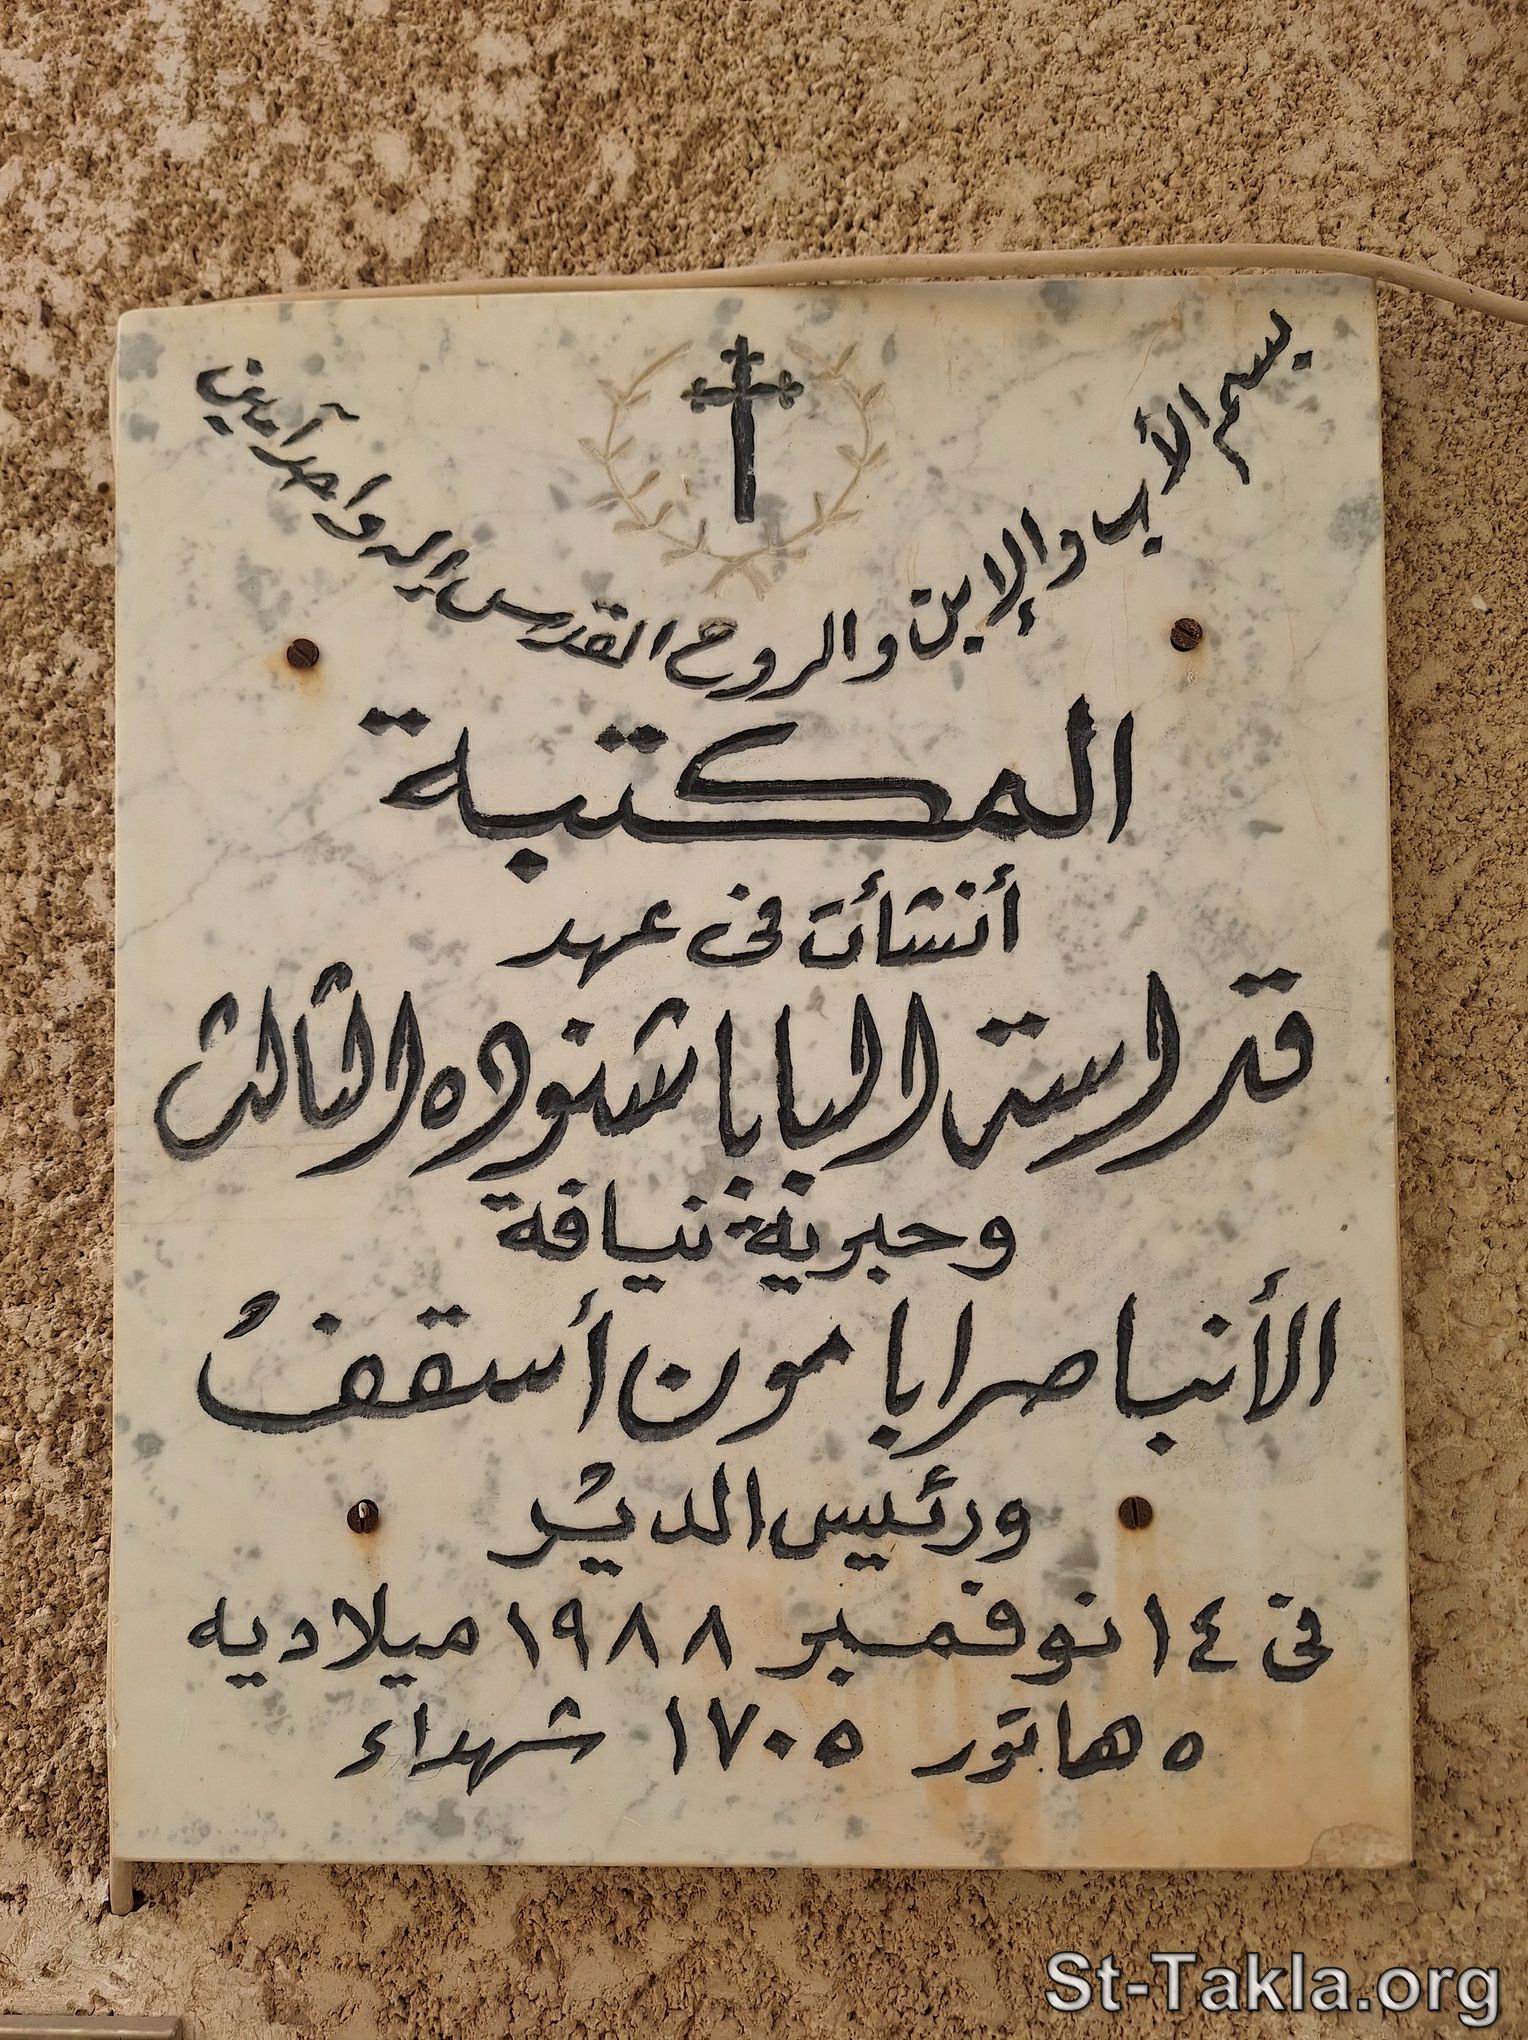 بسم الأب والإبن والروح القدس إله واحد آمين
المكتبة
أنشأت فى عهد
قداسة البابا شنوده الثالث
وحبرية نيافة
الأنبا صرابامون أسقف
ورئيس الدير
فى ١٤ نوفمبر ١٩٨٨ ميلاديه
٥ هاتور ١٧٠٥ شهداء
St-Takla.org